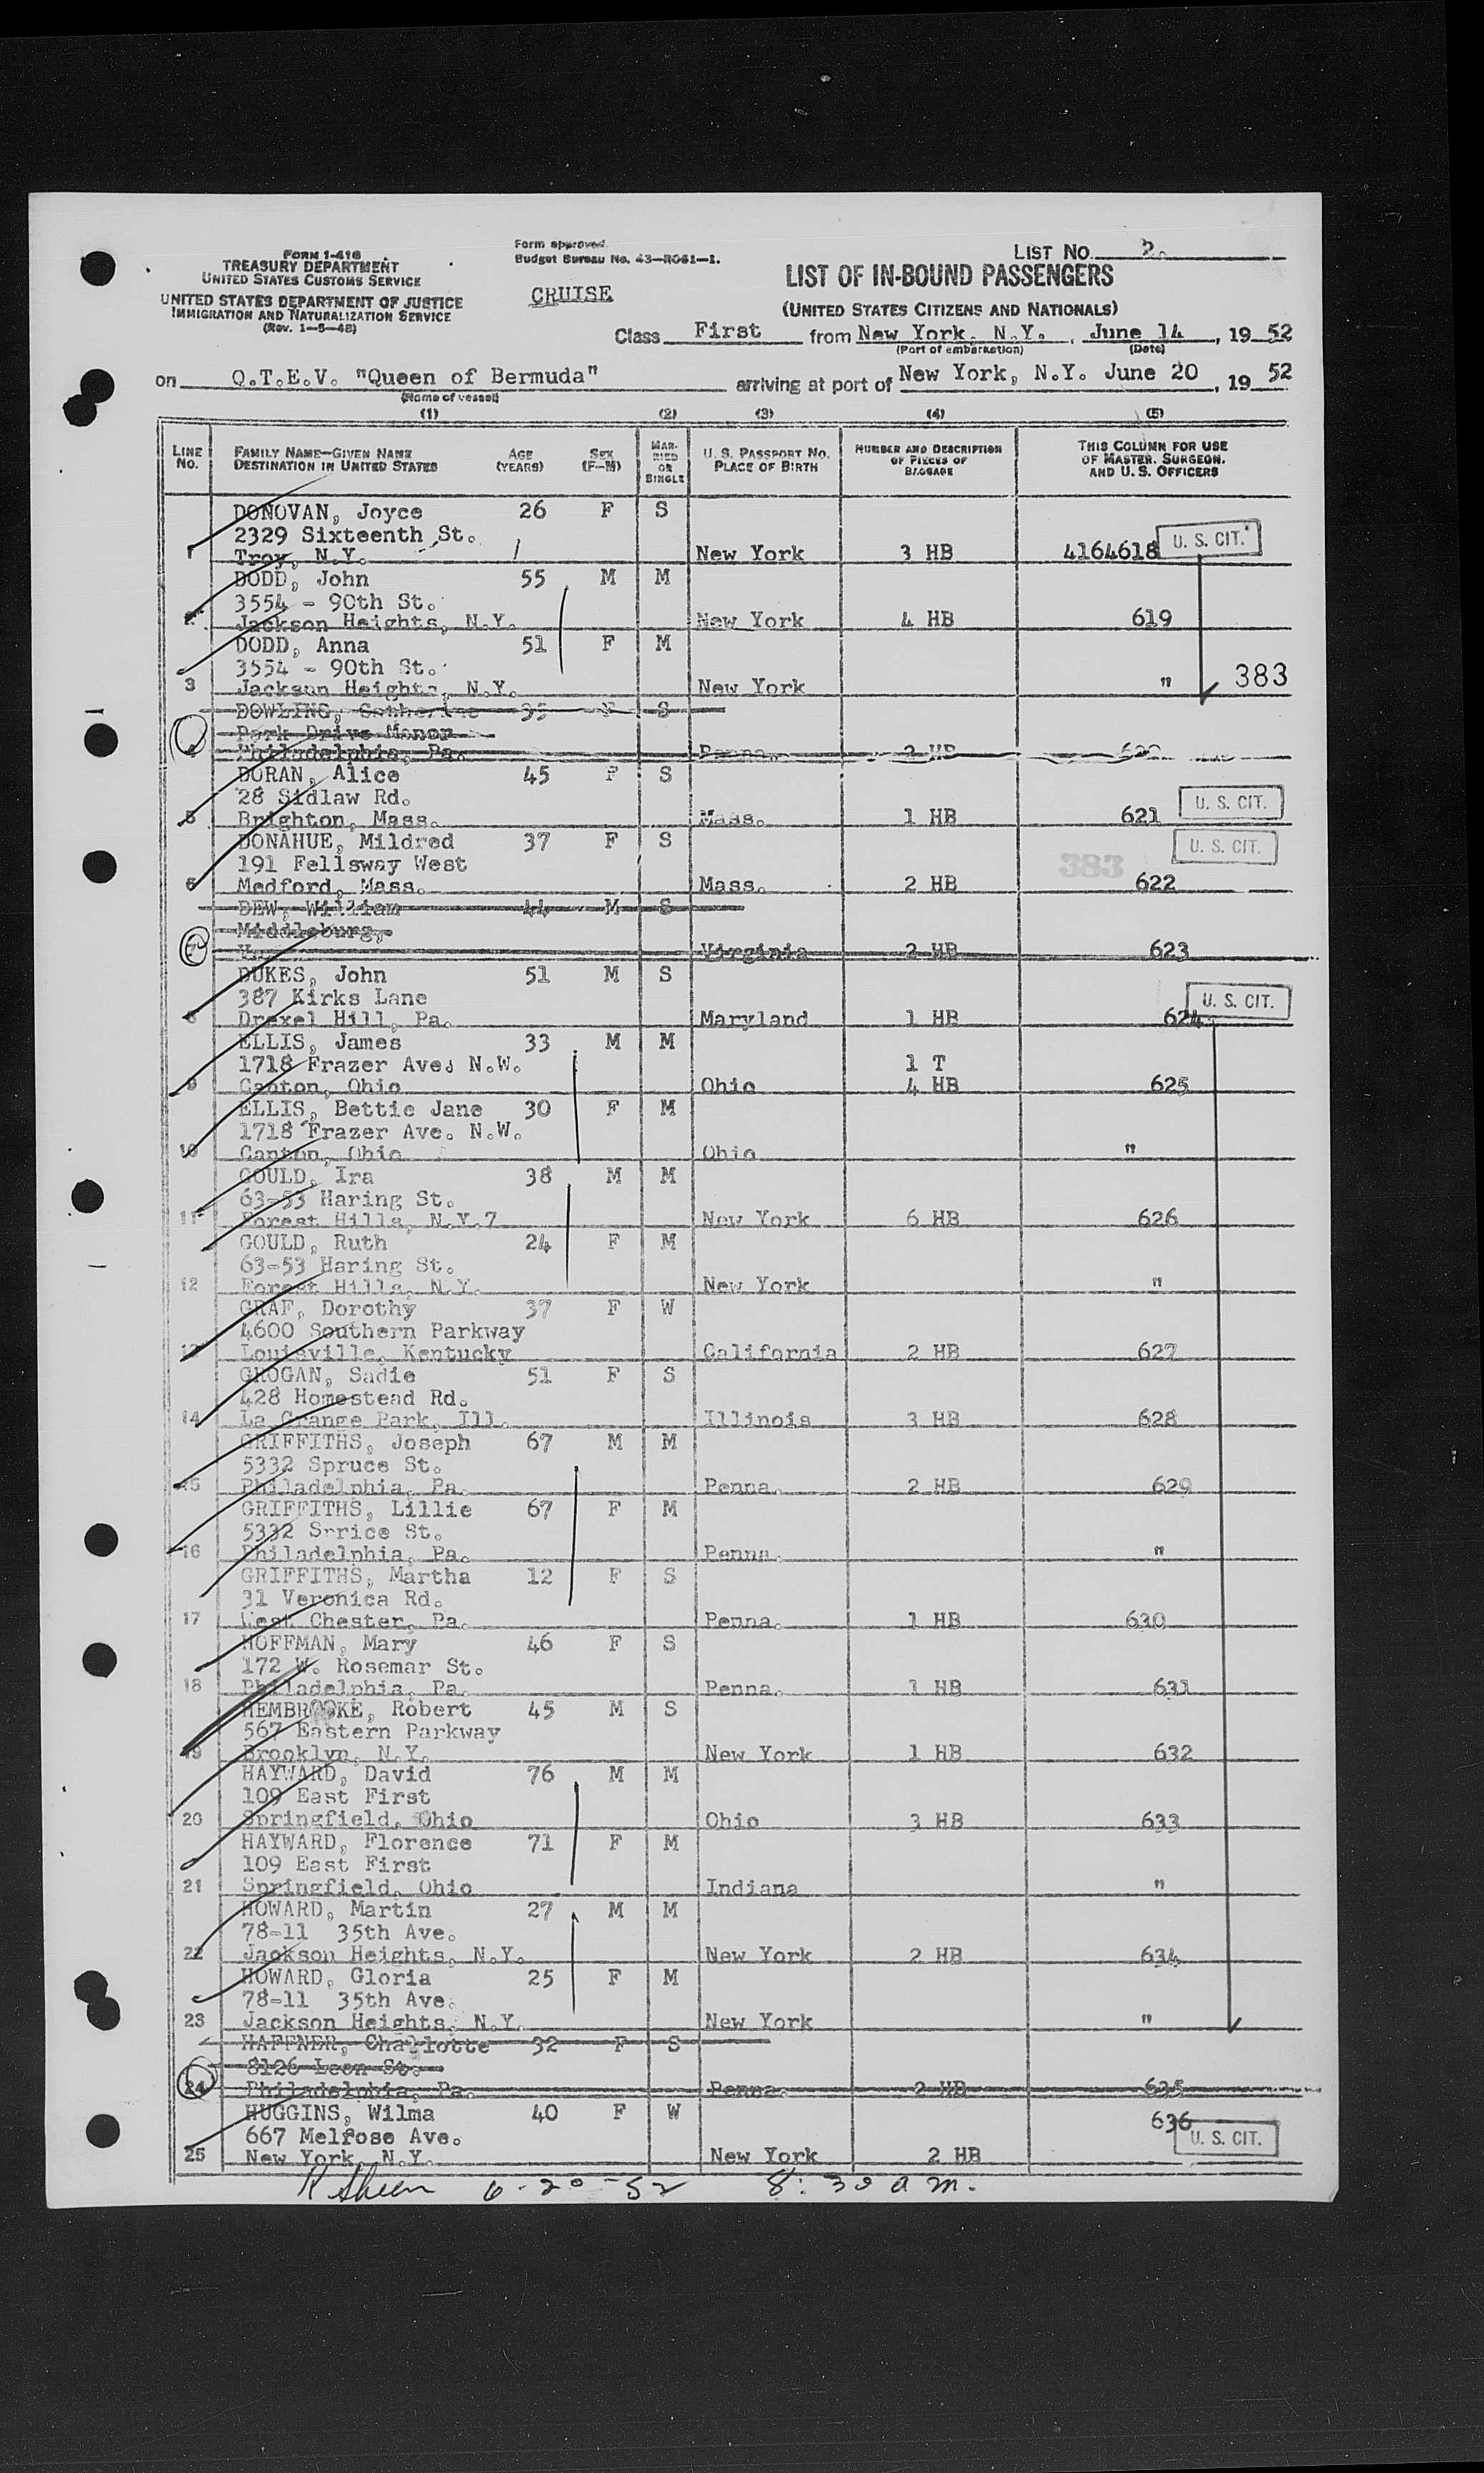 FORM I-418
TREASURY DEPARTMENT
UNITED STATES CUSTOMS SERVICE
UNITED STATES DEPARTMENT OF JUSTICE
IMMIGRATION AND NATURALIZATION SERVICE
(Rev. 1-5-48)
Form approved.
Budget Bureau No. 43-R061-1.
CRUISE
LIST NO. 2.
LIST OF IN-BOUND PASSENGERS
(UNITED STATES CITIZENS AND NATIONALS)
Class First from New York, N.Y. , June 14 , 19 52
(Port of embarkation) (Date)
on Q.T.E.V. "Queen of Bermuda" arriving at port of New York, N.Y. June 20 , 19 52
(Name of vessel)
(1) (2) (3) (4) (5)
LINE NO. FAMILY NAME—GIVEN NAME DESTINATION IN UNITED STATES AGE (YEARS) SEX (F—M) MARRIED OR SINGLE U. S. PASSPORT NO. PLACE OF BIRTH NUMBER AND DESCRIPTION OF PIECES OF BAGGAGE THIS COLUMN FOR USE OF MASTER, SURGEON, AND U. S. OFFICERS
DONOVAN, Joyce 26 F S
2329 Sixteenth St.
1 Troy, N.Y. New York 3 HB 4164618 U. S. CIT.
DODD, John 55 M M
3554 - 90th St.
2 Jackson Heights, N.Y. New York 4 HB 619
DODD, Anna 51 F M
3554 - 90th St.
3 Jackson Heights, N.Y. New York " 383
DOWLING, Catherine 35 F S
Park Drive Manor
4 Philadelphia, Pa. Penna. 2 HB 620
DORAN, Alice 45 F S
28 Sidlaw Rd.
5 Brighton, Mass. Mass. 1 HB 621 U. S. CIT.
DONAHUE, Mildred 37 F S U. S. CIT.
191 Fellsway West 383
6 Medford, Mass. Mass. 2 HB 622
DEW, William 44 M S
Middleburg,
7 Virginia 2 HB 623
DUKES, John 51 M S
387 Kirks Lane
8 Drexel Hill, Pa. Maryland 1 HB 624 U. S. CIT.
ELLIS, James 33 M M
1718 Frazer Ave. N.W. 1 T
9 Canton, Ohio Ohio 4 HB 625
ELLIS, Bettie Jane 30 F M
1718 Frazer Ave. N.W.
10 Canton, Ohio Ohio "
GOULD, Ira 38 M M
63-53 Haring St.
11 Forest Hills, N.Y.7 New York 6 HB 626
GOULD, Ruth 24 F M
63-53 Haring St.
12 Forest Hills, N.Y. New York "
GRAF, Dorothy 37 F W
4600 Southern Parkway
13 Louisville, Kentucky California 2 HB 627
GROGAN, Sadie 51 F S
428 Homestead Rd.
14 La Grange Park, Ill. Illinois 3 HB 628
GRIFFITHS, Joseph 67 M M
5332 Spruce St.
15 Philadelphia, Pa. Penna. 2 HB 629
GRIFFITHS, Lillie 67 F M
5332 Sprice St.
16 Philadelphia, Pa. Penna. "
GRIFFITHS, Martha 12 F S
31 Veronica Rd.
17 West Chester, Pa. Penna. 1 HB 630
HOFFMAN, Mary 46 F S
172 W. Rosemar St.
18 Philadelphia, Pa. Penna. 1 HB 631
HEMBROOKE, Robert 45 M S
567 Eastern Parkway
19 Brooklyn, N.Y. New York 1 HB 632
HAYWARD, David 76 M M
109 East First
20 Springfield, Ohio Ohio 3 HB 633
HAYWARD, Florence 71 F M
109 East First
21 Springfield, Ohio Indiana "
HOWARD, Martin 27 M M
78-11 35th Ave.
22 Jackson Heights, N.Y. New York 2 HB 634
HOWARD, Gloria 25 F M
78-11 35th Ave.
23 Jackson Heights, N.Y. New York "
HAFFNER, Charlotte 32 F S
8126 Leon St.
24 Philadelphia, Pa. Penna. 2 HB 635
HUGGINS, Wilma 40 F W 636
667 Melrose Ave. U. S. CIT.
25 New York, N.Y. New York 2 HB
6-20-52 8:30 a m.